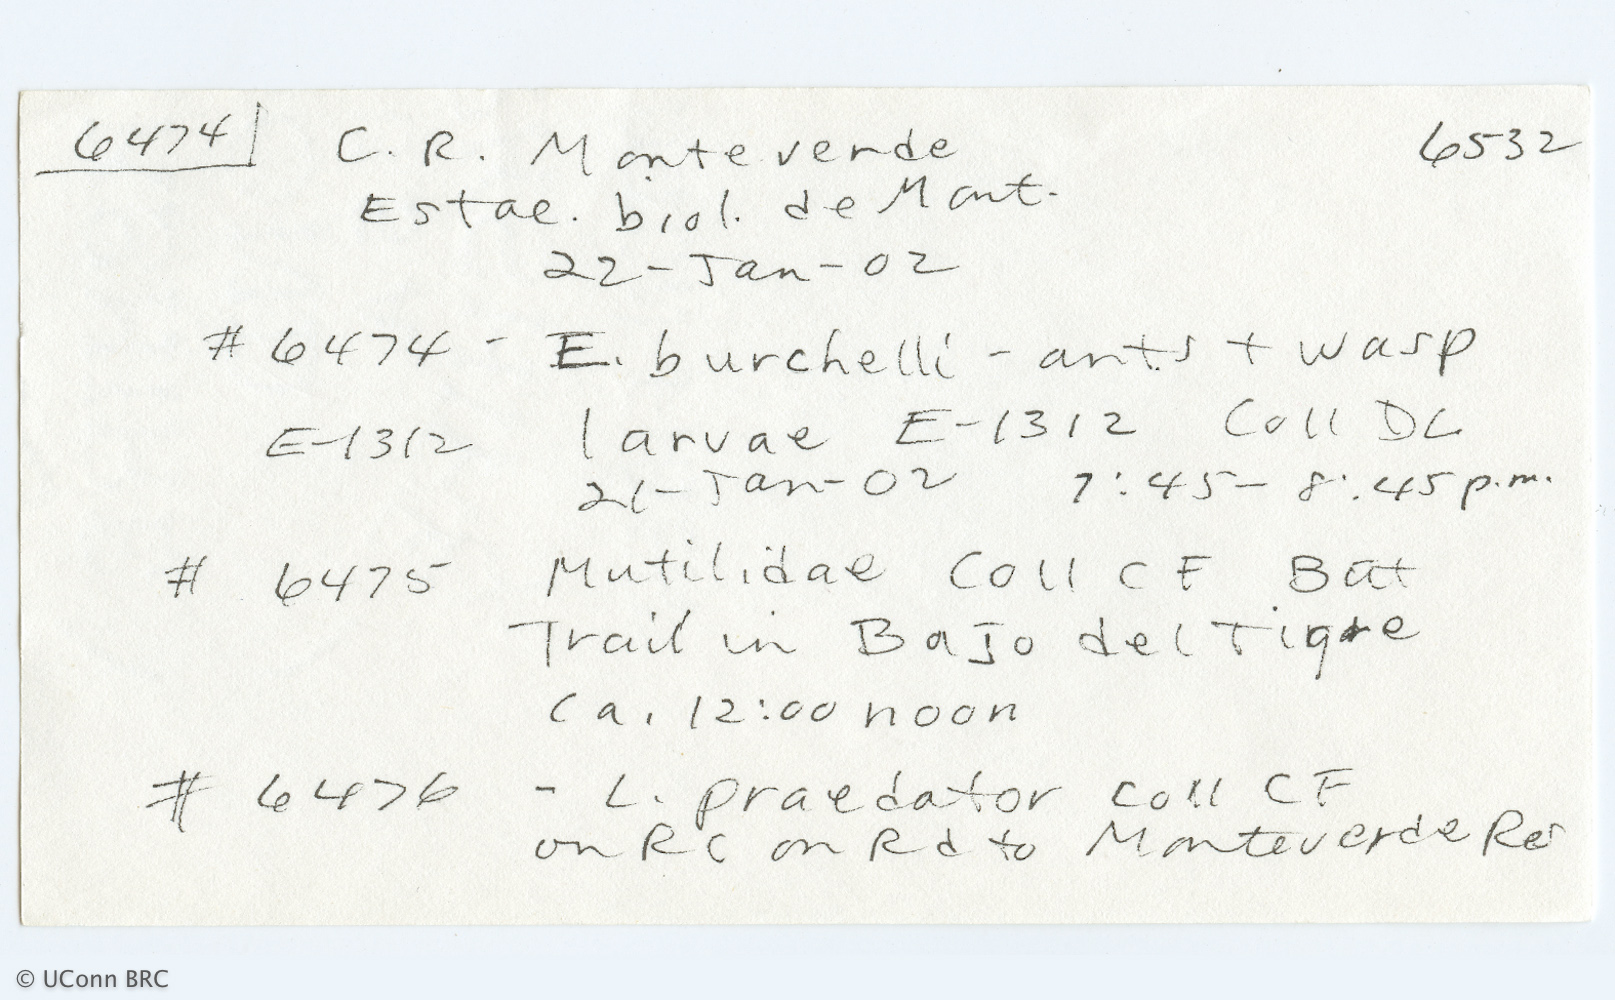 6474 C. R. Monteverde 6532
Estac. biol. de Mont.
22-Jan-02
# 6474 - E. burchelli - ants + wasp
E-1312 larvae E-1312 Coll DL
21-Jan-02 7:45- 8:45 p.m.
# 6475 Mutilidae Coll CF Bat
Trail in Bajo del Tigre
Ca. 12:00 noon
# 6476 - L. praedator Coll CF
on RC on Rd to Monteverde Res
© UConn BRC